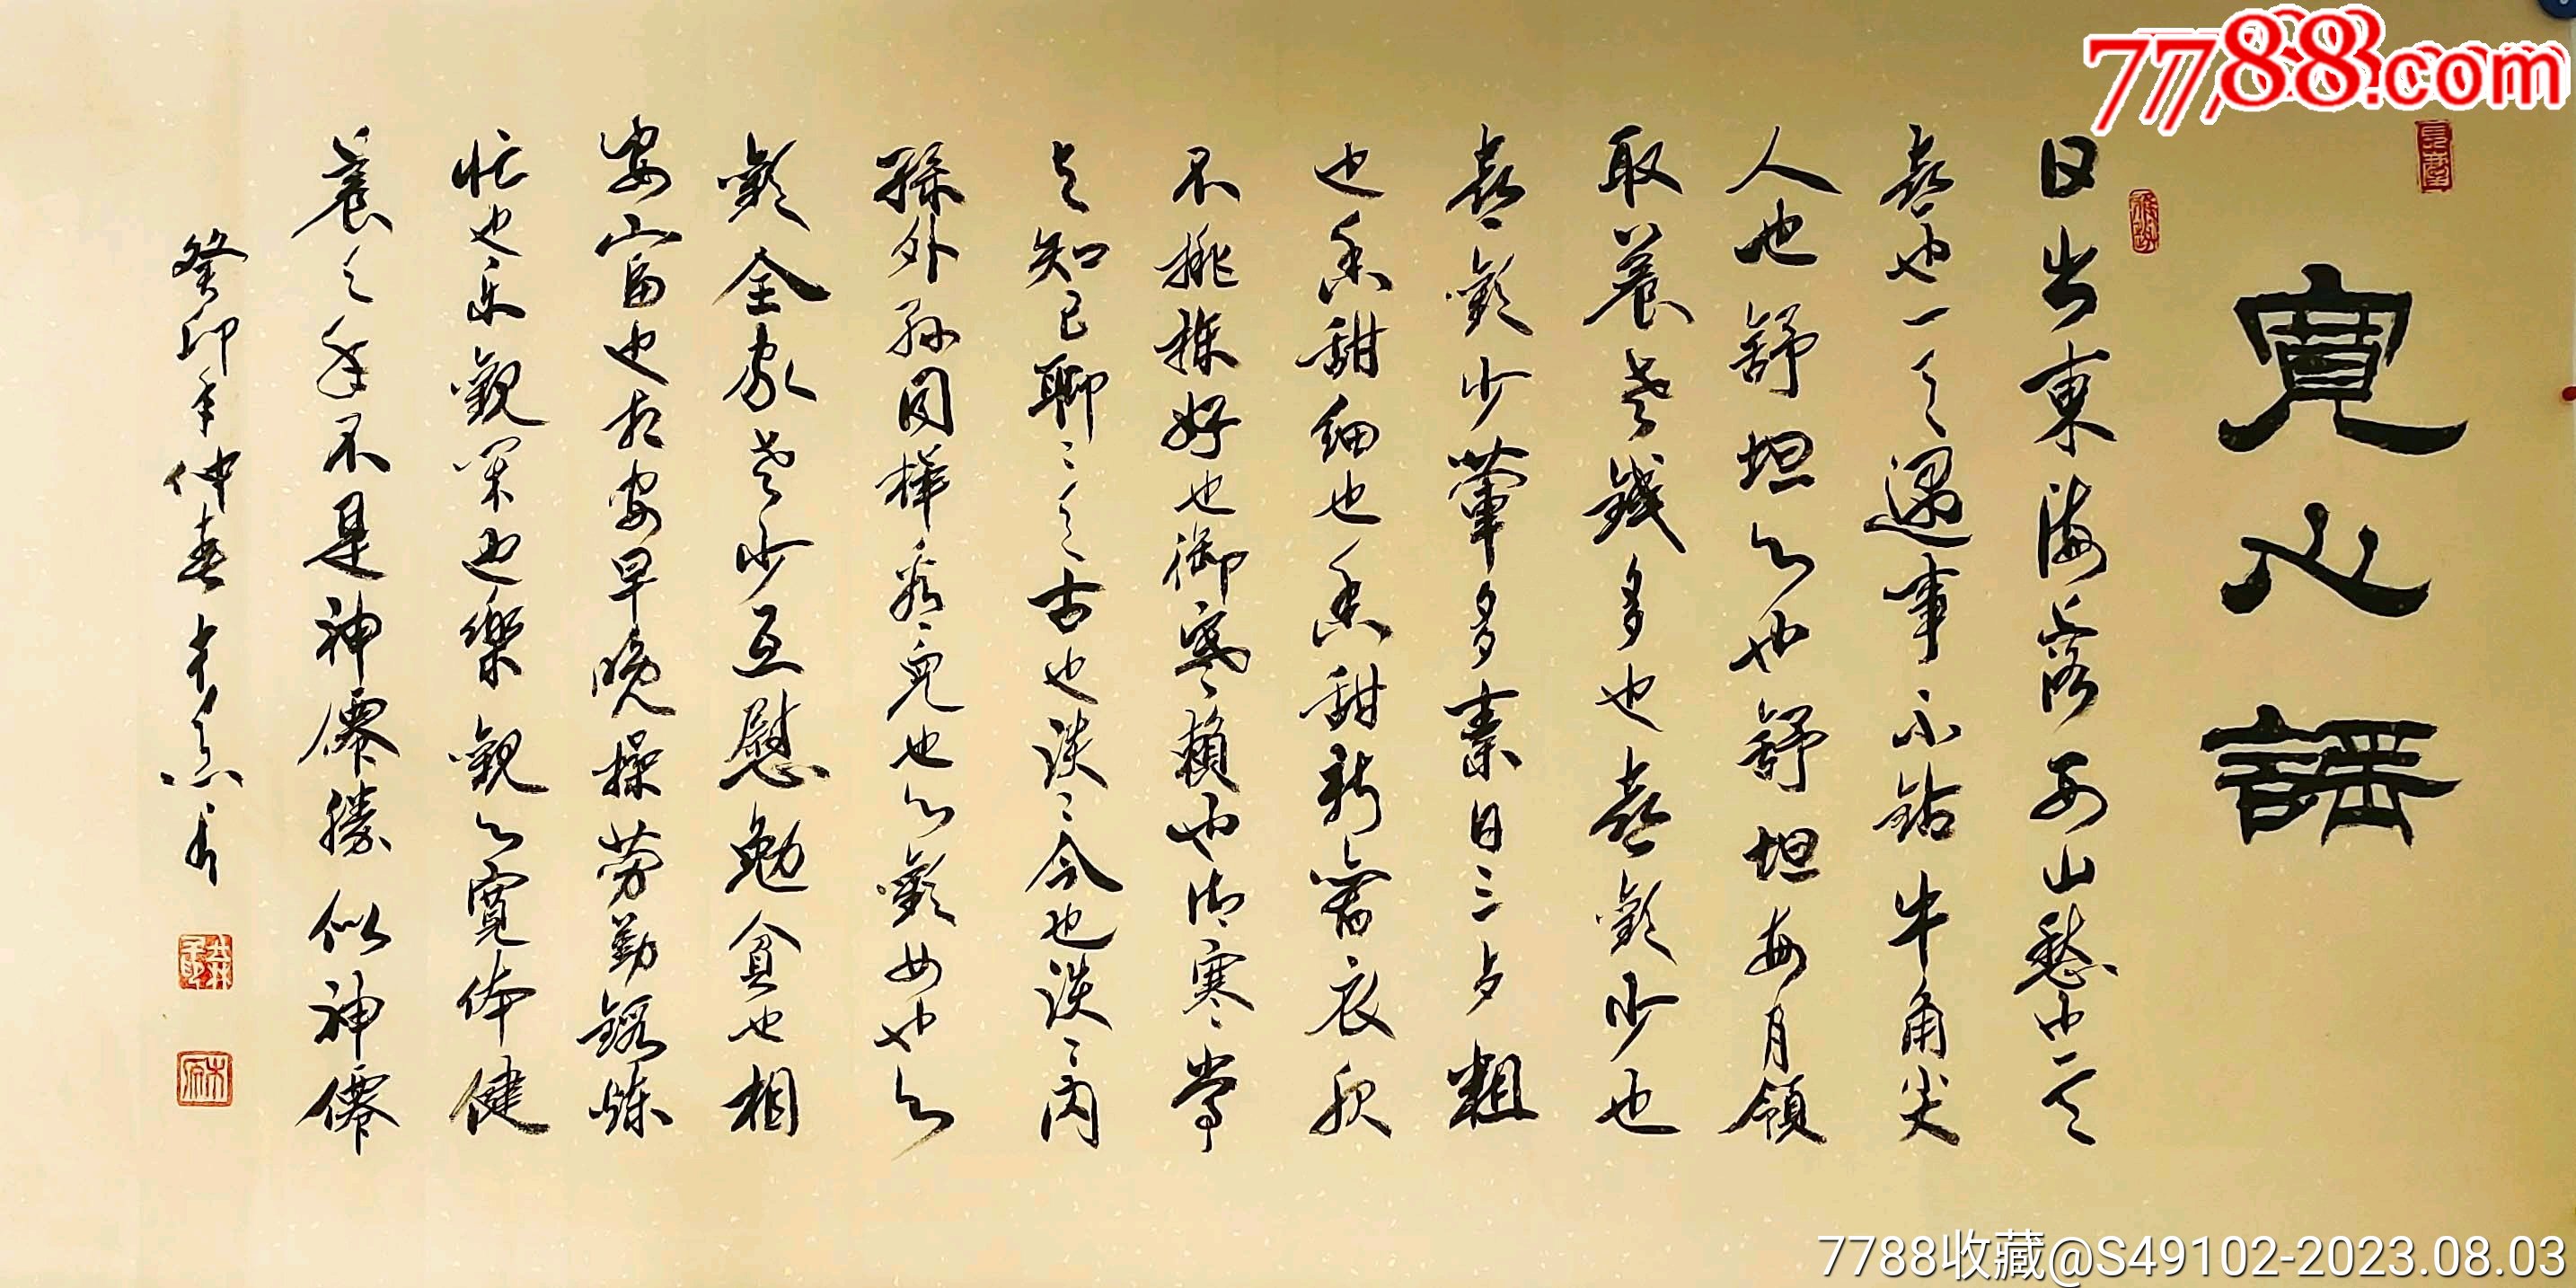 7788.com
寬心謠
日出東海落西山愁也一天
喜也一天遇事不鉆牛角尖
人也舒坦心也舒坦每月領
取養老錢多也喜歡少也
喜歡少葷多素日三夕粗
也香甜細也香甜新舊衣服
不挑揀好也御寒賴也御寒常
与知己聊々天古也談々今也談々內
孫外孫同樣看兒也心歡女也心
歡全家老少互慰勉貧也相
安富也相安早晚操勞勤鍛煉
忙也乐觀閑也樂觀心寬体健
養天年不是神僊勝似神僊
癸卯年仲春
7788收藏@S49102-2023.08.03